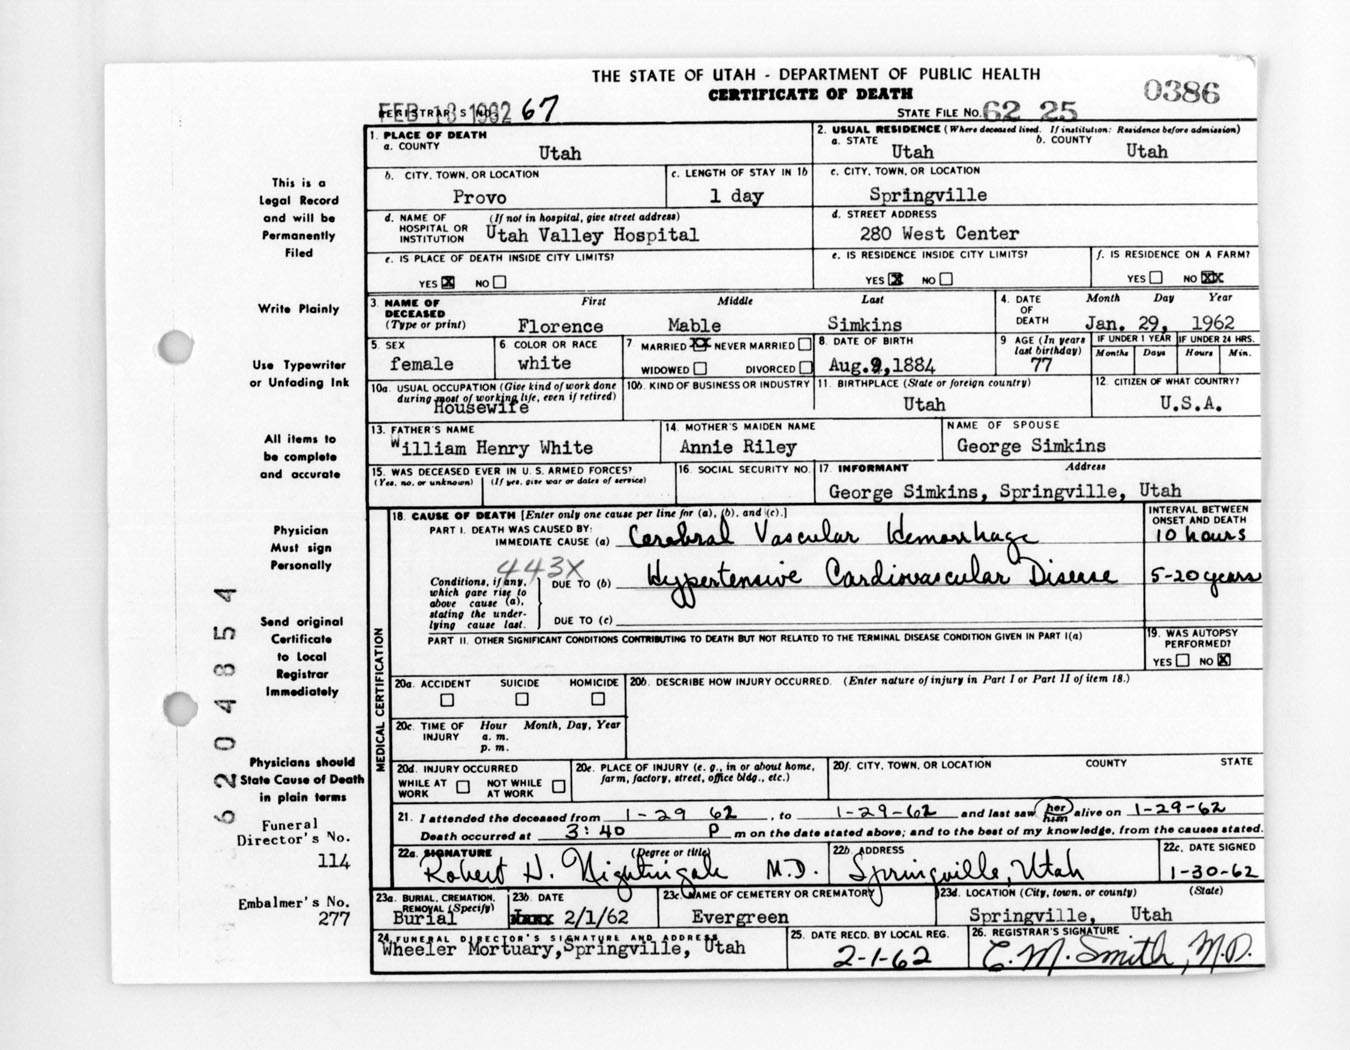 THE STATE OF UTAH - DEPARTMENT OF PUBLIC HEALTH
CERTIFICATE OF DEATH
0386
FEB 13 1962
REGISTRAR'S NO. 67
STATE FILE NO. 62 25
1. PLACE OF DEATH
a. COUNTY
Utah
2. USUAL RESIDENCE (Where deceased lived. If institution: Residence before admission)
a. STATE
Utah
b. COUNTY
Utah
b. CITY, TOWN, OR LOCATION
Provo
c. LENGTH OF STAY IN 1b
1 day
c. CITY, TOWN, OR LOCATION
Springville
d. NAME OF HOSPITAL OR INSTITUTION (If not in hospital, give street address)
Utah Valley Hospital
d. STREET ADDRESS
280 West Center
e. IS PLACE OF DEATH INSIDE CITY LIMITS?
YES X NO
e. IS RESIDENCE INSIDE CITY LIMITS?
YES X NO
f. IS RESIDENCE ON A FARM?
YES NO XX
3. NAME OF DECEASED (Type or print)
First Middle Last
Florence Mable Simkins
4. DATE OF DEATH
Month Day Year
Jan. 29, 1962
5. SEX
female
6. COLOR OR RACE
white
7 MARRIED XX NEVER MARRIED
WIDOWED DIVORCED
8. DATE OF BIRTH
Aug.9,1884
9 AGE (In years last birthday)
77
IF UNDER 1 YEAR
Months Days
IF UNDER 24 HRS.
Hours Min.
10a. USUAL OCCUPATION (Give kind of work done during most of working life, even if retired)
Housewife
10b. KIND OF BUSINESS OR INDUSTRY
11. BIRTHPLACE (State or foreign country)
Utah
12. CITIZEN OF WHAT COUNTRY?
U.S.A.
13. FATHER'S NAME
William Henry White
14. MOTHER'S MAIDEN NAME
Annie Riley
NAME OF SPOUSE
George Simkins
15. WAS DECEASED EVER IN U. S. ARMED FORCES?
(Yes, no, or unknown) (If yes, give war or dates of service)
16. SOCIAL SECURITY NO.
17. INFORMANT Address
George Simkins, Springville, Utah
MEDICAL CERTIFICATION
18. CAUSE OF DEATH [Enter only one cause per line for (a), (b), and (c).]
PART I. DEATH WAS CAUSED BY:
IMMEDIATE CAUSE (a) Cerebral Vascular Hemorrhage
INTERVAL BETWEEN ONSET AND DEATH
10 hours
443X
Conditions, if any, which gave rise to above cause (a), stating the underlying cause last.
DUE TO (b) Hypertensive Cardiovascular Disease
5-20 years
DUE TO (c)
PART II. OTHER SIGNIFICANT CONDITIONS CONTRIBUTING TO DEATH BUT NOT RELATED TO THE TERMINAL DISEASE CONDITION GIVEN IN PART I(a)
19. WAS AUTOPSY PERFORMED?
YES NO X
20a. ACCIDENT SUICIDE HOMICIDE
20b. DESCRIBE HOW INJURY OCCURRED. (Enter nature of injury in Part I or Part II of item 18.)
20c. TIME OF INJURY
Hour Month, Day, Year
a. m.
p. m.
20d. INJURY OCCURRED
WHILE AT WORK NOT WHILE AT WORK
20e. PLACE OF INJURY (e. g., in or about home, farm, factory, street, office bldg., etc.)
20f. CITY, TOWN, OR LOCATION COUNTY STATE
21. I attended the deceased from 1-29 62, to 1-29-62 and last saw her him alive on 1-29-62
Death occurred at 3:40 P m on the date stated above; and to the best of my knowledge, from the causes stated.
22a. SIGNATURE (Degree or title)
Robert H. Nightingale M.D.
22b. ADDRESS
Springville, Utah
22c. DATE SIGNED
1-30-62
23a. BURIAL, CREMATION, REMOVAL (Specify)
Burial
23b. DATE
2/1/62
23c. NAME OF CEMETERY OR CREMATORY
Evergreen
23d. LOCATION (City, town, or county) (State)
Springville, Utah
24. FUNERAL DIRECTOR'S SIGNATURE AND ADDRESS
Wheeler Mortuary, Springville, Utah
25. DATE RECD. BY LOCAL REG.
2-1-62
26. REGISTRAR'S SIGNATURE
C. M. Smith, M.D.
This is a
Legal Record
and will be
Permanently
Filed
Write Plainly
Use Typewriter
or Unfading Ink
All items to
be complete
and accurate
Physician
Must sign
Personally
Send original
Certificate
to Local
Registrar
Immediately
Physicians should
State Cause of Death
in plain terms
Funeral
Director's No.
114
Embalmer's No.
277
6204854